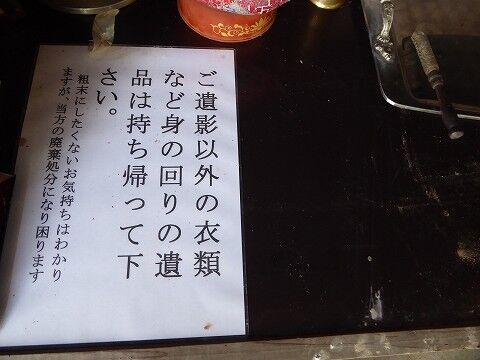 ご遺影以外の衣類
など身の回りの遺
品は持ち帰って下
さい。
粗末にしたくないお気持ちはわかり
ますが、当方の廃棄処分になり困ります